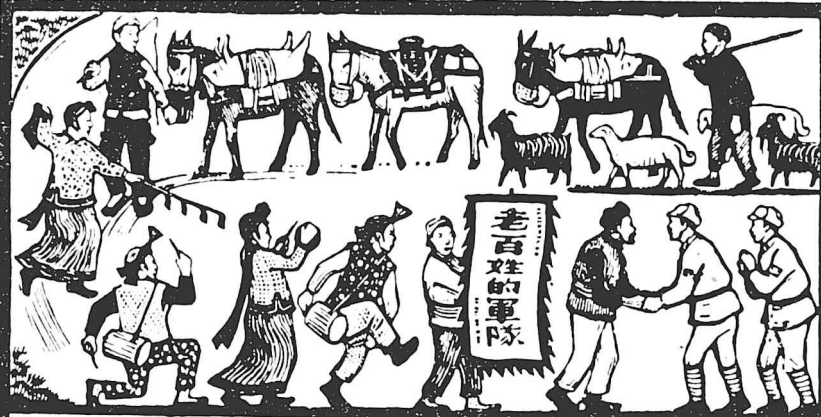 老百姓的軍隊